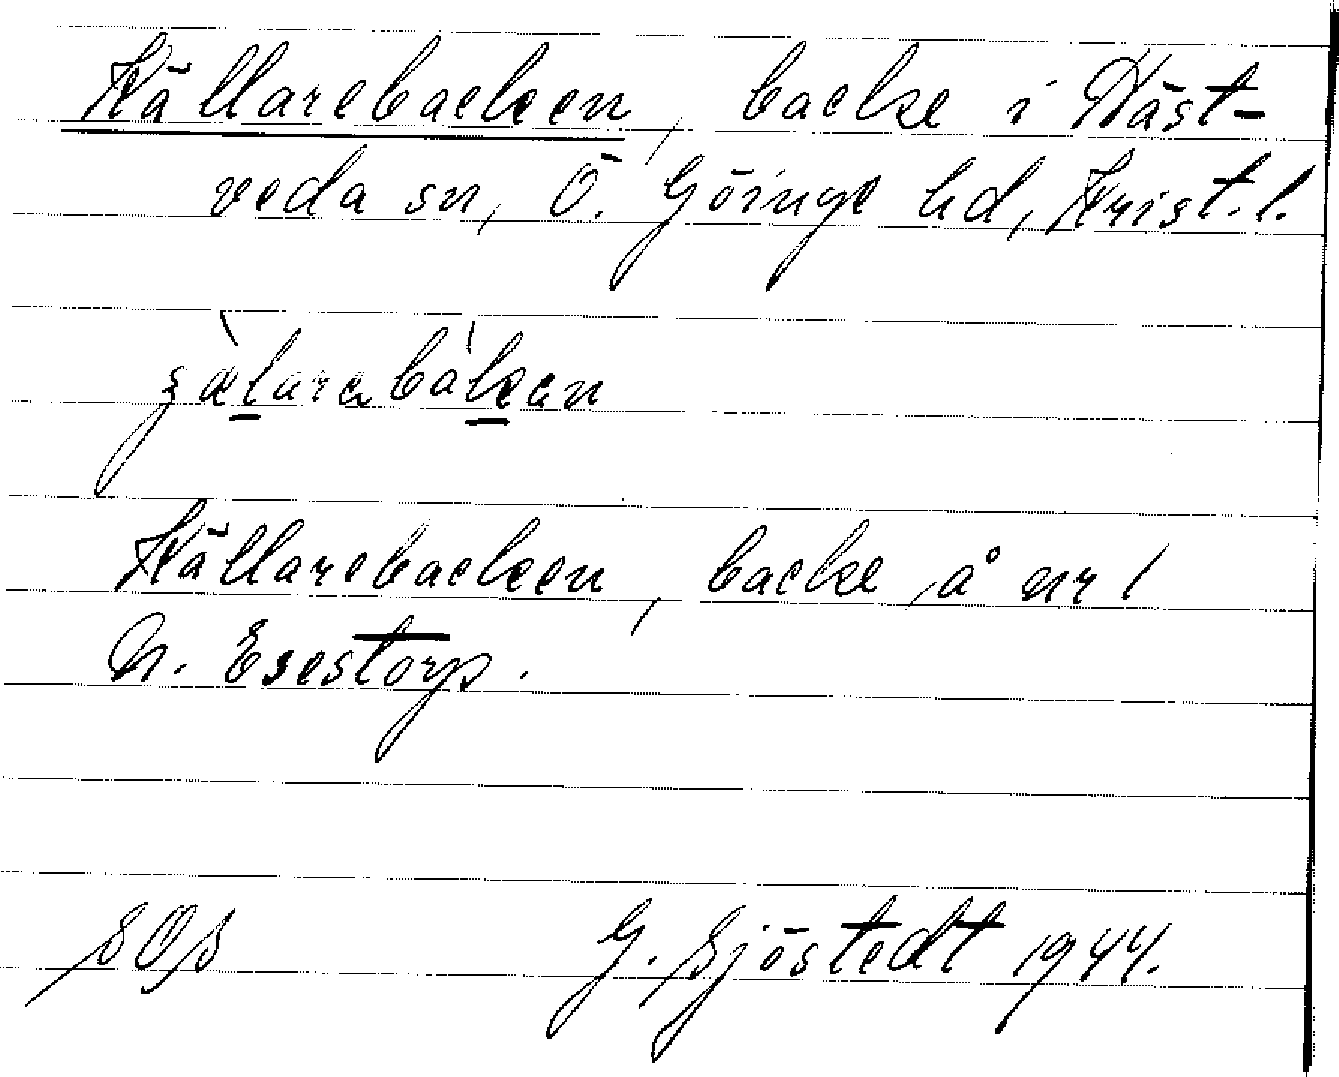 Källarebacken, backe i Häst-
veda sn, Ö. Göinge hd, Krist. l.
Källarebacken, backe å nr 1
N. Esestorp.
SOS G. Sjöstedt 1944.